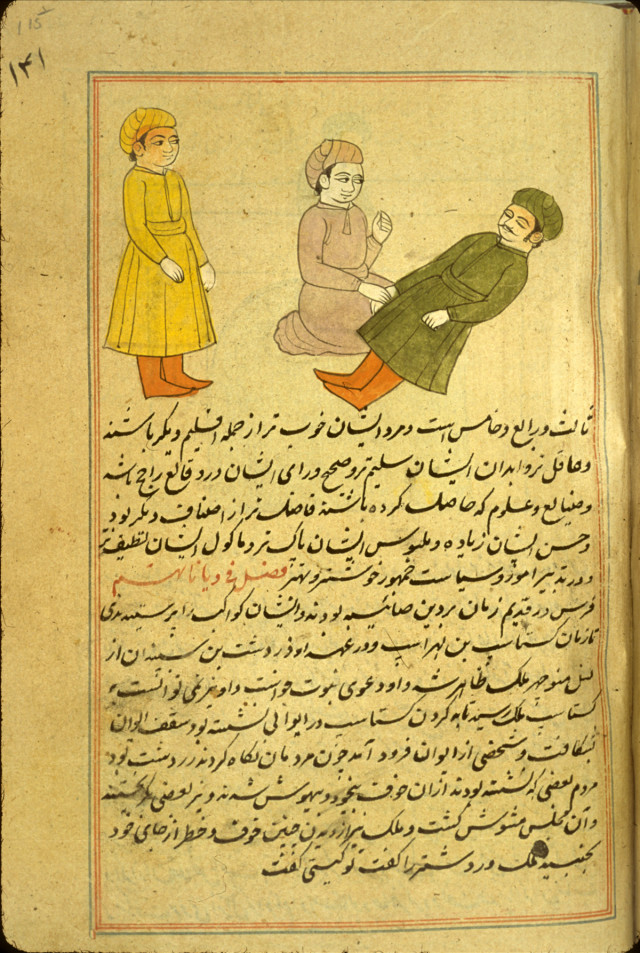 115
۱۴۱
ثالث و رابع و خامس است و مردم ایشان خوب تر از جمله اقلیم دیگر باشند
و عاقل تر و ابدان ایشان سلیم تر و صحیح و رای ایشان در وقائع راجح باشد
و صنایع و علوم که حاصل کرده باشند فاضل تر از اصناف دیگر بود
و حسن ایشان زیاده و ملبوس ایشان پاک تر و ماکول ایشان لطیف تر
و در تدبیر امور و سیاست جمهور خوشتر و بهتر فصل فی دیاناتهم
فرس در قدیم زمان بر دین صائبیه بودند و ایشان کواکب را پرستیدندی
تا زمان کستاسپ بن لهراسپ و در عهد او ذردشت بن سپیدان از
نسل منوچهر ملک ظاهر شد و او دعوی نبوت خواست و او نمی توانست به
کستاسپ ملک رسید تا به کردن کستاسپ در ایوانی نشسته بود سقف ایوان
بشکافت و شخصی از ایوان فرود آمد چون مردمان نگاه کردند زردشت بود
مردم بعضی که نشسته بودند از آن خوف بیخود و بیهوش شدند و بعضی بگریختند
و آن مجلس مشوش گشت و ملک نیز از دیدن چنین خوف و خطر از جای خود
بجنبید ملک زردشت را گفت تو کیستی گفت